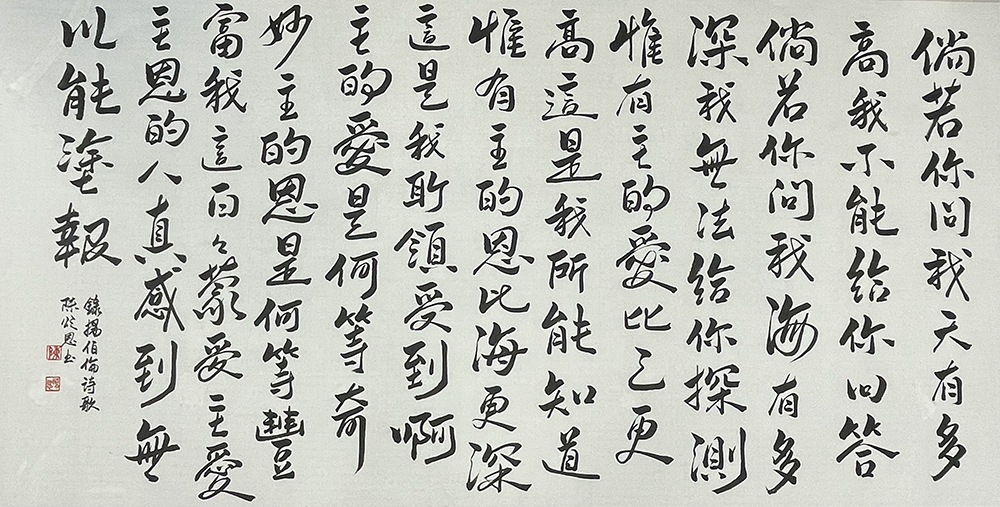 倘若你問我天有多
高我不能給你回答
倘若你問我海有多
深我無法給你探測
惟有主的愛比之更
高這是我所能知道
惟有主的恩比海更深
這是我所領受到啊
主的愛是何等奇
妙主的恩是何等豐
富我這白々蒙受主愛
主恩的人真感到無
以能塗報
錄楊伯倫詩歌
陳恩书